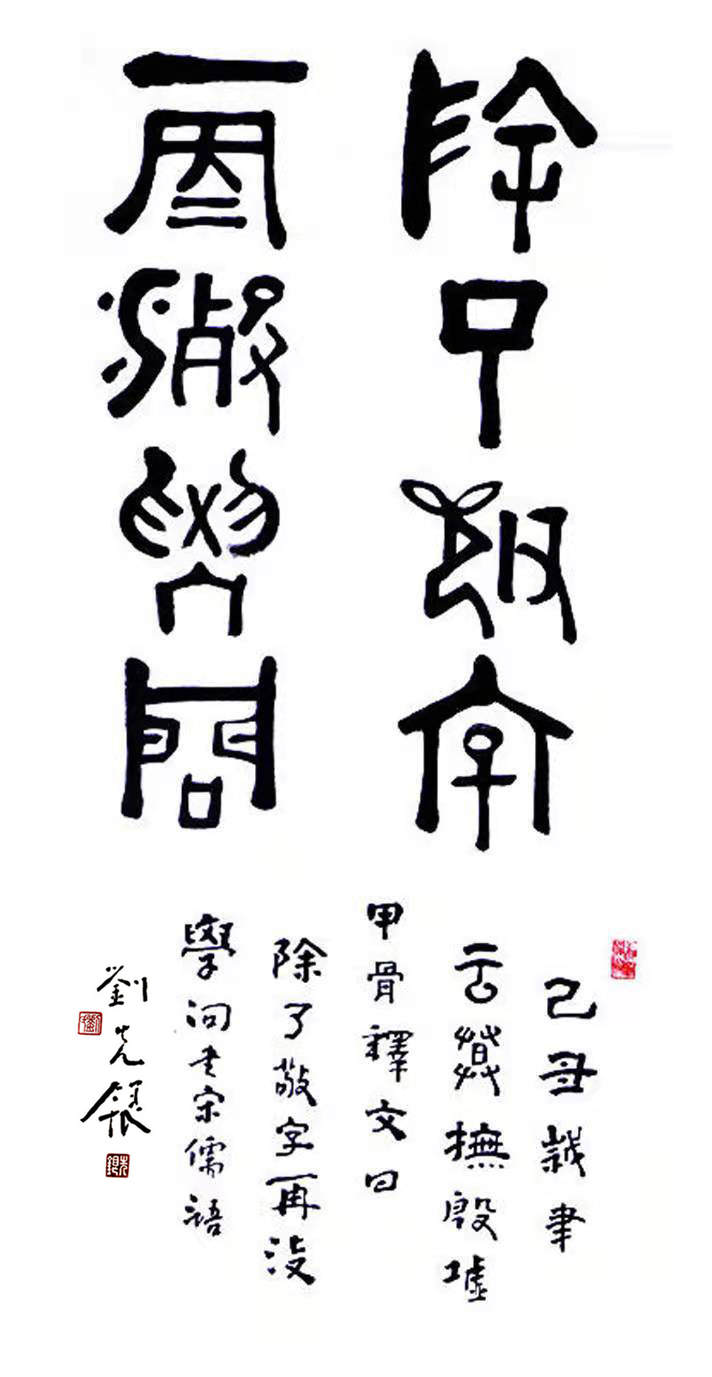 除了敬字
再沒學問
己丑 聿
撫殷墟
甲骨釋文曰
除了敬字再沒
學問 宋儒語
劉先銀